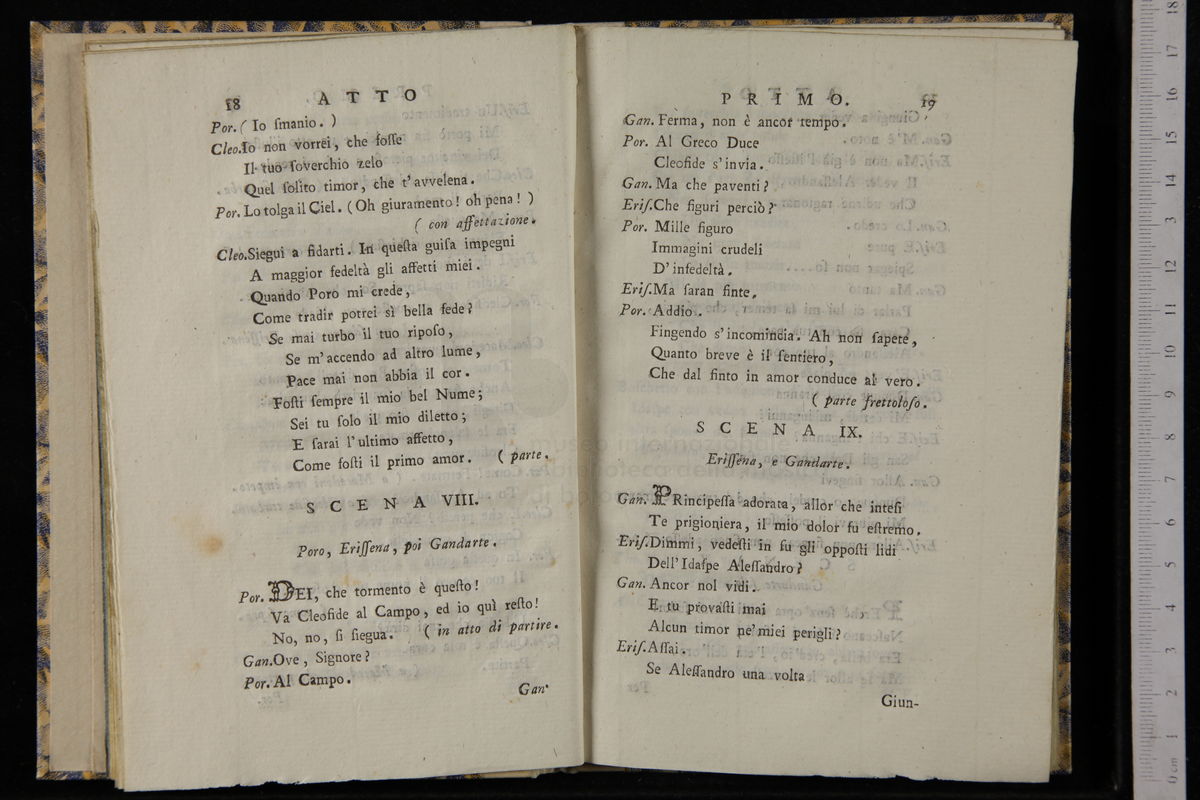 18 ATTO
Por. ( Io ſmanio. )
Cleo. Io non vorrei, che foſſe
Il tuo ſoverchio zelo
Quel ſolito timor, che t'avvelena.
Por. Lo tolga il Ciel. ( Oh giuramento! oh pena! )
( con affettazione.
Cleo. Siegui a fidarti. In queſta guiſa impegni
A maggior fedeltà gli affetti miei.
Quando Poro mi crede,
Come tradir potrei sì bella fede?
Se mai turbo il tuo ripoſo,
Se m'accendo ad altro lume,
Pace mai non abbia il cor.
Foſti ſempre il mio bel Nume;
Sei tu ſolo il mio diletto;
E ſarai l'ultimo affetto,
Come foſti il primo amor. ( parte.
SCENA VIII.
Poro, Eriſſena, poi Gandarte.
Por. DEI, che tormento è queſto!
Va Cleofide al Campo, ed io quì reſto!
No, no, ſi ſiegua. ( in atto di partire.
Gan. Ove, Signore?
Por. Al Campo.
Gan.
PRIMO. 19
Gan. Ferma, non è ancor tempo.
Por. Al Greco Duce
Cleofide s'invia.
Gan. Ma che paventi?
Eriſ. Che figuri perciò?
Por. Mille figuro
Immagini crudeli
D'infedeltà.
Eriſ. Ma ſaran finte.
Por. Addio.
Fingendo s'incomincia. Ah non ſapete,
Quanto breve è il ſentiero,
Che dal finto in amor conduce al vero.
( parte frettoloſo.
SCENA IX.
Eriſſena, e Gandarte.
Gan. PRincipeſſa adorata, allor che inteſi
Te prigioniera, il mio dolor fu eſtremo.
Eriſ. Dimmi, vedeſti in ſu gli oppoſti lidi
Dell'Idaſpe Aleſſandro?
Gan. Ancor nol vidi.
E tu provaſti mai
Alcun timor ne'miei perigli?
Eriſ. Aſſai.
Se Aleſſandro una volta
Giun-